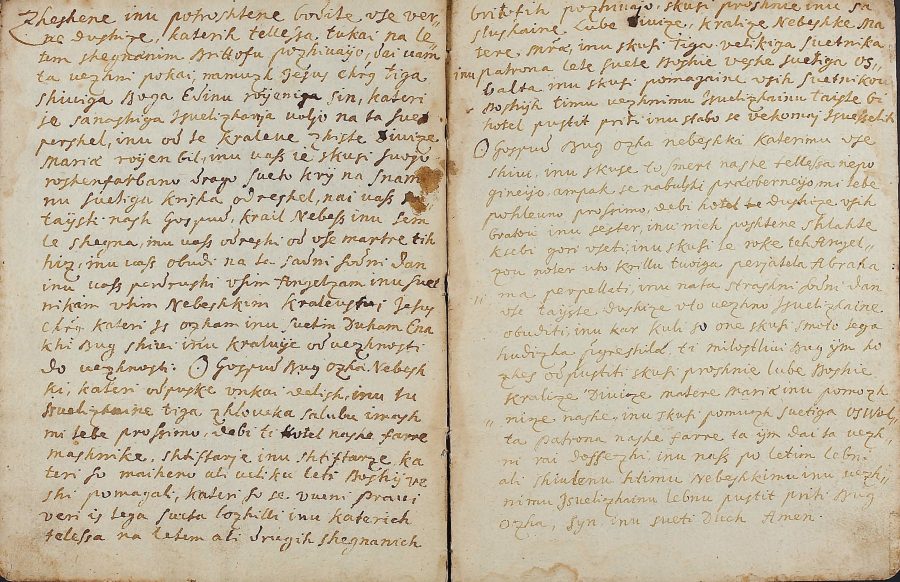 Zheshene inu potroshtene bodite vse ver-
ne dushize, katerih tellessa tukai na le
tem shegnanim Brittofu pozhivaijo, dai vam
ta vezhni pokai, namuzh Jesus Chrs tiga
shiviga Boga Edinu roijeniga sin, kateri
je sa nashiga Isvelizhanja voljo na ta svet
pershel, inu od te kraleve zhiste Divize
Mariæ roijen bil, inu vass je skusi svojo
roshenfarbano drago sveto kry na snam-
nu svetiga krisha odreshel, nai vass
taijsti nash Gospud, krail Nebess inu sem
le shegna, inu vass odreshi od vse martre tih
hiz, inu vass obudi na ta sadni sodni dan
inu vass perdrushi vsim Angelzam inu svet
nikam vtim Nebeshkim kralevstvi, Jesus
Chrs kateri js ozham inu svetim Duham Ena
khi Bug shivi inu kraluije od vezhnosti
do vezhnosti. O Gospud Bug ozha Nebesh
ki, kateri odpuske vnkai delish, inu tu
Isvelizhaine tiga zhloveka salubu imash
mi tebe prossimo, debi ti hotel nashe farre
mashnike, shtiftarje inu shtiftarze, ka
teri so maiheno ali veliku leti Boshij ve
shi pomagali, kateri so se vueni pravi
veri is tega sveta lozhilli inu katerich
tellessa na letem ali drugih shegnanich
britofih pozhivaijo, skusi proshnie inu sa
slushaine Lube Divize, kralize Nebeshke Ma
tere, Mriæ, inu skusi tiga velikiga Svetnika
inu patrona lete svete Boshie veshe Svetiga Os
balta inu skusi pomagaine vsih Svetnikou
Boshijh timu vezhnimu Isvelizhainu taijste bi
hotel pustit priti inu stabo se vekomaj Isvesseliti
O Gospud Bug ozha nebeshki katerimu vse
shivi, inu skuse to smert nashe tellessa nepo
gineijo, ampak se nabulshi preoberneijo, mi tebe
pohleuno prossimo, debi hotel te dushize vsih
bratou inu sester, inu nich poshtene shlahte
k sebi gori vseti, inu skusi te roke teh Angel
zou noter vto krillu tvoiga perjatela Abraha
ma, perpellati, inu nata strashni sodni dan
vse taijste dushize vto vezhno Isvelizhaine
obuditi, inu kar kuli so one skusi smoto tega
hudizha pregreshilæ, ti milostlivi Bug ijm ho
zhes odpustiti skusi proshnie lube Boshie
kralize Divize matere Mariæ inu pomozh
nize nashe, inu skusi pomuzh svetiga Oswal
ta patrona nashe farre ta ijm dai ta vezh
ni rai dossezhi, inu nass po letim lebni
ali shivlenu htimu Nebeshkimu inu vezh
nimu Isvelizhainu lebnu pustit priti Bug
Ozha, Syn, inu sveti Duch Amen.